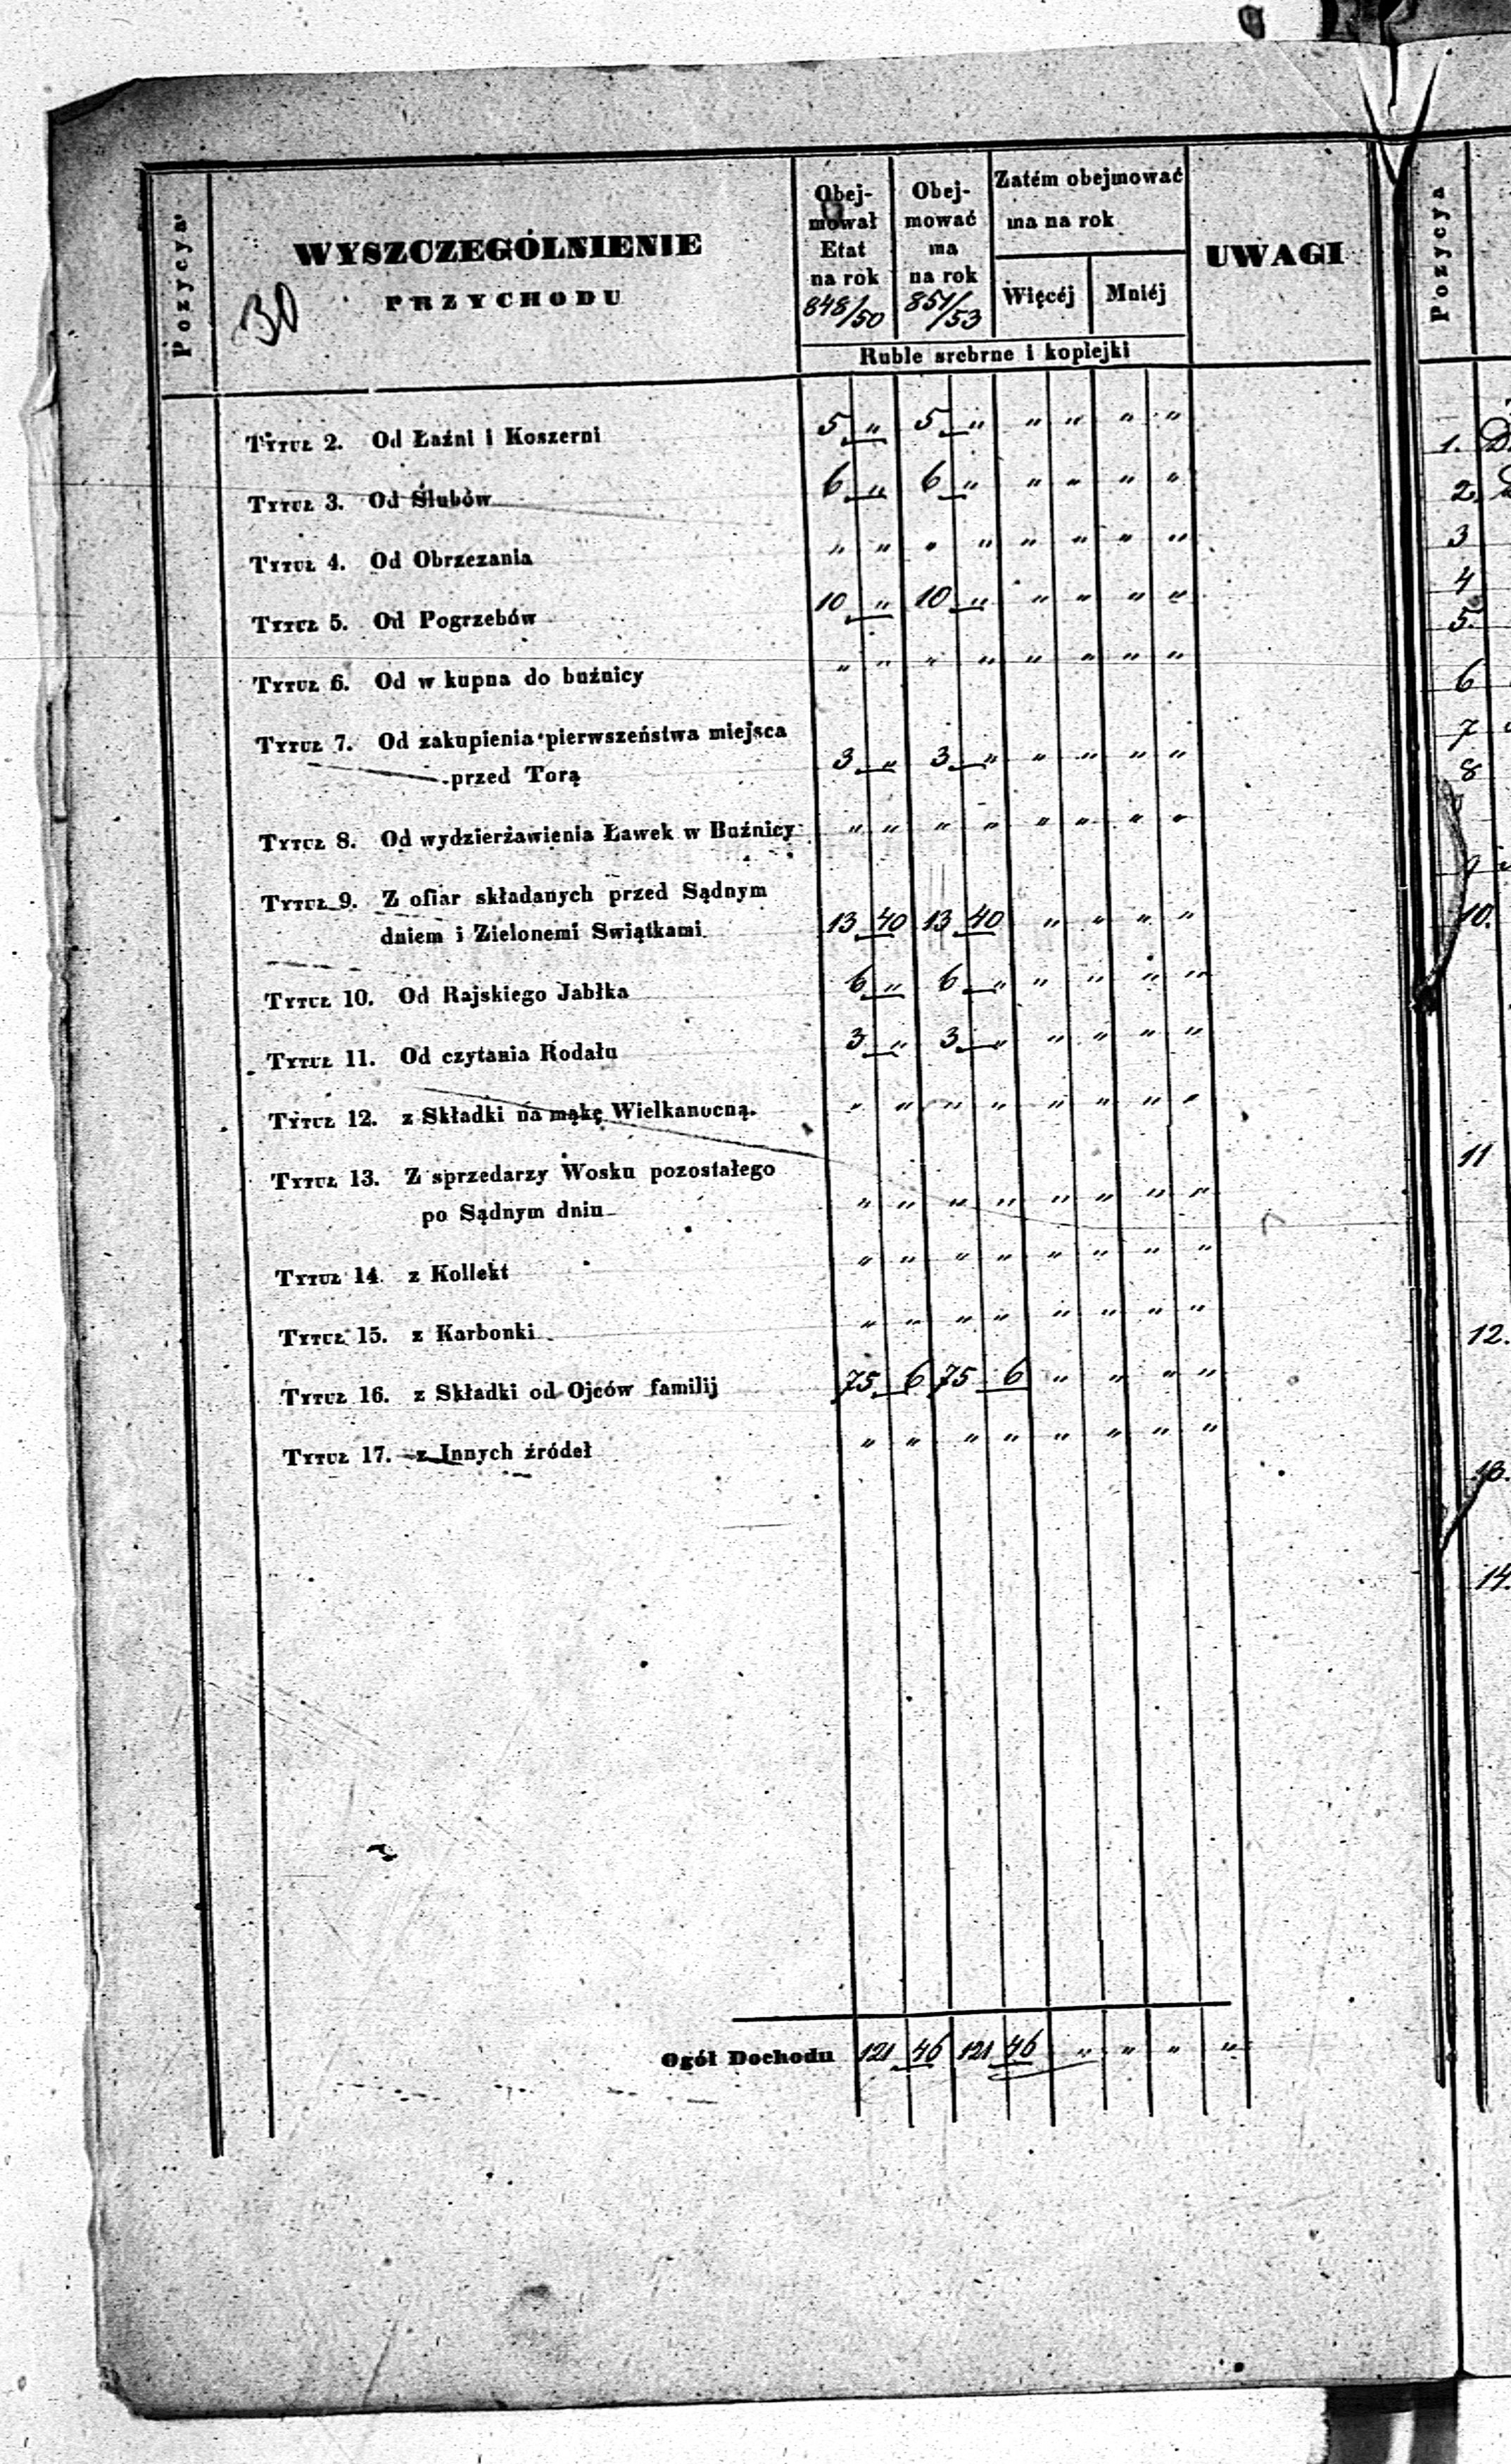 Pozycya
WYSZCZEGÓLNIENIE
PRZYCHODU
30
Obej-
mował
Etat
na rok
848/50
Obej-
mować
ma
na rok
851/53
Zatém obejmować
ma na rok
Więcéj
Mniéj
Ruble srebrne i kopiejki
UWAGI
Tytuł 2. Od Łaźni i Koszerni 5 „ 5 „ „ „ „ „
Tytuł 3. Od Ślubów 6 „ 6 „ „ „ „ „
Tytuł 4. Od Obrzezania „ „ „ „ „ „ „ „
Tytuł 5. Od Pogrzebów 10 „ 10 „ „ „ „ „
Tytuł 6. Od w kupna do buźnicy „ „ „ „ „ „ „ „
Tytuł 7. Od zakupienia pierwszeństwa miejsca
przed Torą 3 „ 3 „ „ „ „ „
Tytuł 8. Od wydzierżawienia Ławek w Buźnicy „ „ „ „ „ „ „ „
Tytuł 9. Z ofiar składanych przed Sądnym
dniem i Zielonemi Swiątkami 13 40 13 40 „ „ „ „
Tytuł 10. Od Rajskiego Jabłka 6 „ 6 „ „ „ „ „
Tytuł 11. Od czytania Rodału 3 „ 3 „ „ „ „ „
Tytuł 12. z Składki na mąkę Wielkanocną. „ „ „ „ „ „ „ „
Tytuł 13. Z sprzedarzy Wosku pozostałego
po Sądnym dniu „ „ „ „ „ „ „ „
Tytuł 14. z Kollekt „ „ „ „ „ „ „ „
Tytuł 15. z Karbonki „ „ „ „ „ „ „ „
Tytuł 16. z Składki od Ojców familij 75 6 75 6 „ „ „ „
Tytuł 17. z Innych źródeł „ „ „ „ „ „ „ „
Ogół Dochodu 121 46 121 46 „ „ „ „
Pozycya
1.
2.
3
4
5.
6
7
8
10.
11
12.
13.
14.